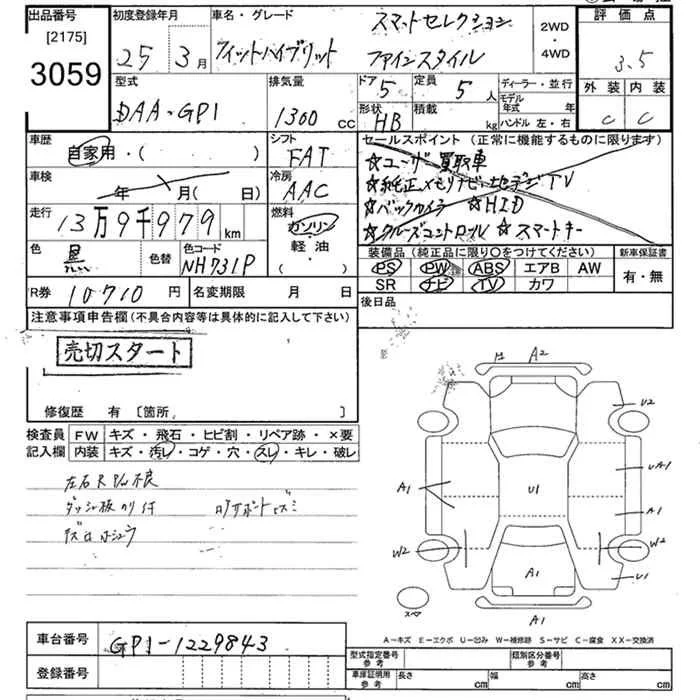 出品番号 初度登録年月 車名・グレード スマートセレクション 2WD・4WD 評価点
[2175]
3059
25 3月 フィットハイブリット ファインスタイル 3.5
型式 排気量 ドア 5 定員 5人 ディーラー・並行 外装 内装
DAA-GP1 1300 cc 形状 HB 積載 kg モデル年式 年 C C
ハンドル 左・右
車歴 自家用・( ) シフト FAT セールスポイント (正常に機能するものに限ります)
☆ユーザー買取車
車検 年 月(日) 冷房 AAC ☆純正メモリナビ・地デジTV
走行 13万9千979km 燃料 ガソリン 軽油・( ) ☆バックカメラ ☆HID
☆クルーズコントロール ☆スマートキー
色 黒 色替 色コード NH731P 装備品 (純正品に限り○をつけてください) 新車保証書
PS PW ABS エアB AW 有・無
R券 10710円 名変期限 月 日 SR ナビ TV カワ
注意事項申告欄 (不具合内容等は具体的に記入して下さい) 後日品
売切スタート
修復歴 有 [箇所, ]
検査員 FW キズ・飛石・ヒビ割・リペア跡・×要
記入欄 内装 キズ・汚レ・コゲ・穴・スレ・キレ・破レ
ダッシュ板のり付
A2
U2
A1 U1 UA1
A1
W2 W2
A1 U1
スペア A1
A-キズ E-エクボ U-凹み W-補修跡 S-サビ C-腐食 XX-交換済
車台番号 GP1-1229843
型式指定番号 参考 類別区分番号 参考
登録番号 車庫証明用 参考 長さ cm 幅 cm 高さ cm